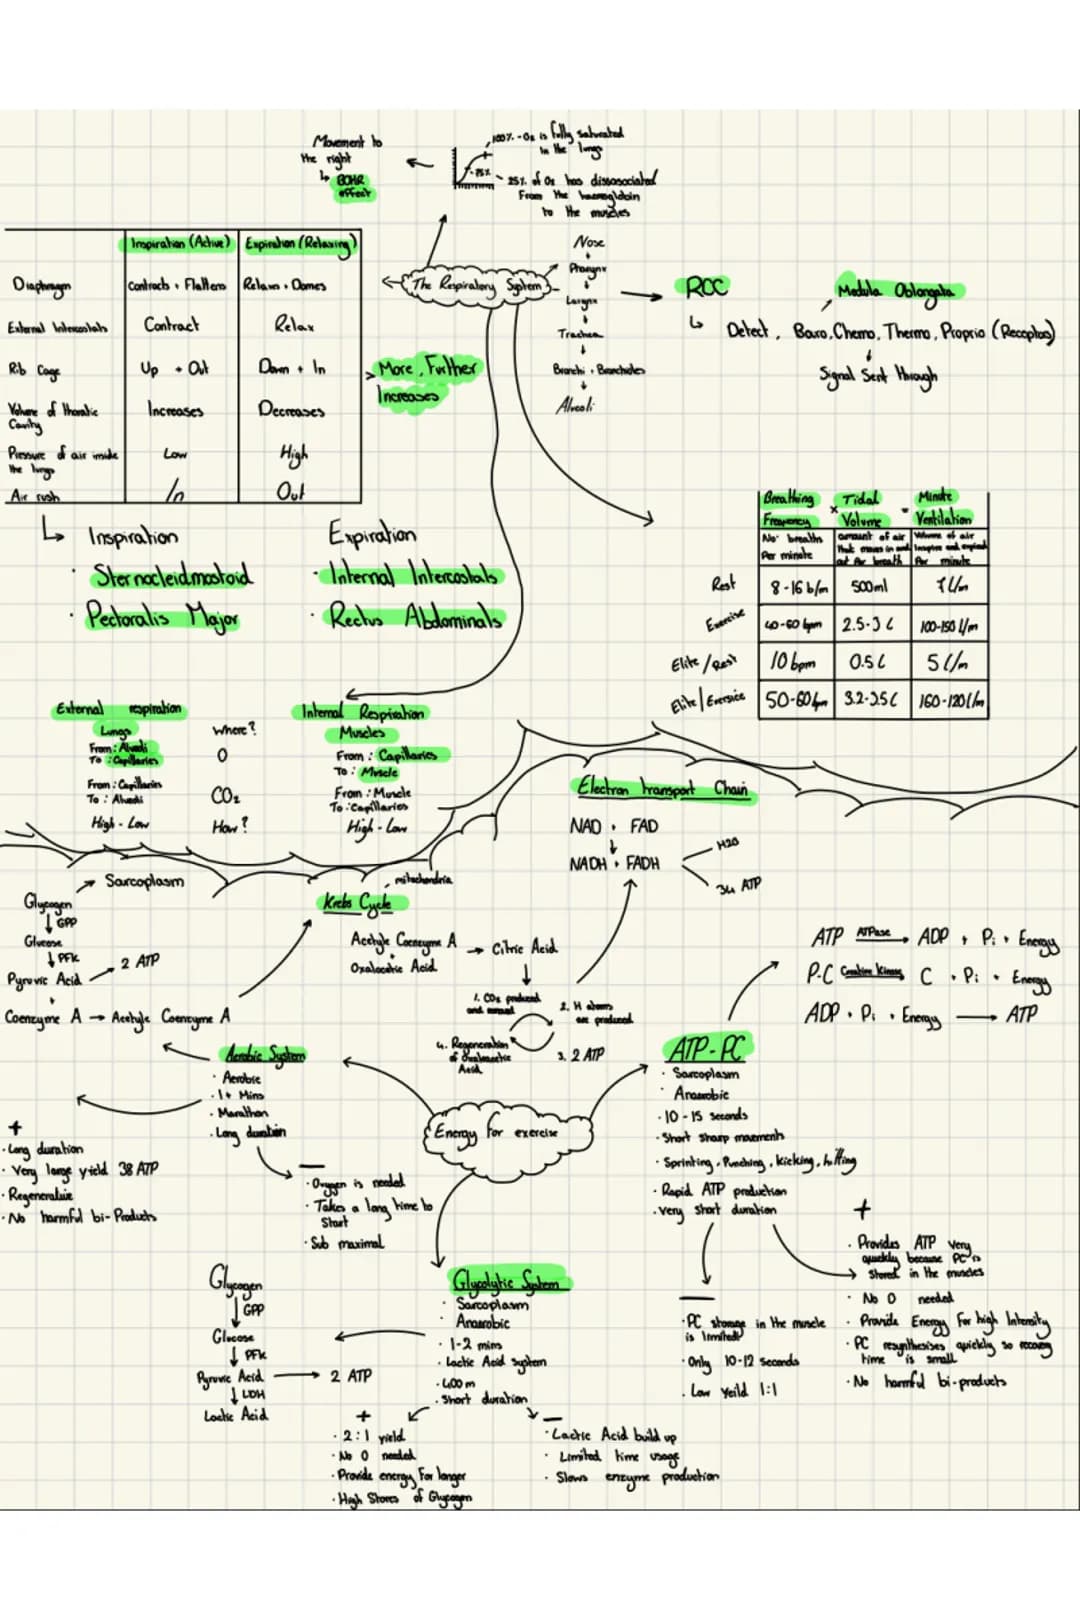 Movement to
the right
↳ BOHR
effect
100% - O2 is fully saturated
in the lungs
75%
25% of O2 has dissosociated
From the haemoglobin
to the muscles
The Respiratory System
Nose
Pharynx
Larynx
Trachea
Bronchi + Bronchioles
Alveoli
RCC
Medula Oblongata
↳ Detect, Baro, Chemo, Thermo, Proprio (Receptors)
Signal Sent through
Inspiration (Active) Expiration (Relaxing)
Diaphragm Contracts + Flattens Relaxes + Domes
External Intercostals Contract Relax
Rib Cage Up + Out Down + In
Volume of thoratic Cavity Increases Decreases
Pressure of air inside the lungs Low High
Air rush In Out
> More, Further
Increases
↳ Inspiration
· Sternocleidmastoid
· Pectoralis Major
Expiration
· Internal Intercostals
· Rectus Abdominals
Breathing Frequency × Tidal Volume = Minute Ventilation
No· breaths Per minute
amount of air that moves in and out Per breath
Volume of air inspired and expired Per minute
Rest 8-16 b/m 500ml 7 L/m
Exercise 40-60 bpm 2.5-3 L 100-150 l/m
Elite/Rest 10 bpm 0.5 L 5 L/m
Elite/Exersice 50-60 bpm 3.2-3.5 L 160-120 l/m
External respiration
Lungs
From: Alveoli
To: Capillaries
From: Capillaries
To: Alveoli
High - Low
Where?
O
CO2
How?
Internal Respiration
Muscles
From: Capillaries
To: Muscle
From: Muscle
To: Capillaries
High - Low
Electron transport Chain
NAD + FAD
NADH + FADH
H2O
34 ATP
Sarcoplasm
Glycogen
GPP
Glucose
PFK
Pyruvic Acid
2 ATP
+
Coenzyme A → Acetyle Coenzyme A
Krebs Cycle
mitochondria
Acetyle Coenzyme A → Citric Acid
+
Oxaloacetic Acid
1. CO2 produced
and removed
2. H atoms
are produced
3. 2 ATP
4. Regeneration
of Oxaloacetic
Acid
ATP ATPase → ADP + Pi + Energy
P-C Creatine Kinase → C + Pi + Energy
ADP + Pi + Energy → ATP
Energy For exercise
Aerobic System
· Aerobic
· 1+ Mins
· Marathon
· Long duration
+
· Long duration
· Very large yield 38 ATP
· Regenerative
· No harmful bi-Products
−
· Oxygen is needed
· Takes a long time to
Start
· Sub maximal
ATP-PC
· Sarcoplasm
· Anaerobic
· 10-15 seconds
· Short sharp movements
· Sprinting, Punching, kicking, hitting
· Rapid ATP production
· Very short duration
−
· PC storage in the muscle
is limited
· Only 10-12 seconds
· Low Yeild 1:1
+
· Provides ATP very
quickly because PC is
stored in the muscles
· No O needed
· Provide Energy For high Intensity
· PC resynthesises quickly so recovery
time is small
· No harmful bi-products
Glycolytic System
· Sarcoplasm
· Anaerobic
· 1-2 mins
· Lactic Acid system
· 400m
· Short duration
Glycogen
GPP
Glucose
PFK
Pyruvic Acid → 2 ATP
LDH
Lactic Acid
+
· 2:1 yield
· No O needed
· Provide energy For longer
· High Stores of Glycogen
−
· Lactic Acid build up
· Limited time usage
· Slows enzyme production